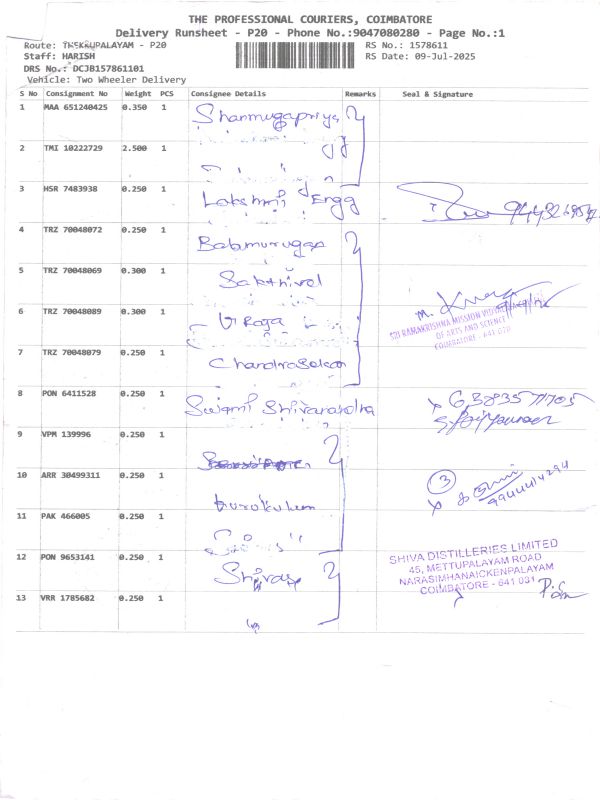 THE PROFESSIONAL COURIERS, COIMBATORE
Delivery Runsheet - P20 - Phone No.:9047080280 - Page No.:1
Route: THEKKUPALAYAM - P20
RS No.: 1578611
Staff: HARISH
RS Date: 09-Jul-2025
DRS No.: DCJB157861101
Vehicle: Two Wheeler Delivery
S No Consignment No Weight PCS Consignee Details Remarks Seal & Signature
1 MAA 651240425 0.350 1 Shanmugapriya
2 TMI 10222729 2.500 1
3 HSR 7483938 0.250 1 Lakshmi Engg
4 TRZ 70048072 0.250 1 Balamurugan
5 TRZ 70048069 0.300 1 Sakthivel
6 TRZ 70048089 0.300 1 Raja
SRI RAMAKRISHNA MISSION VIDYALAYA
OF ARTS AND SCIENCE
COIMBATORE - 641 020
7 TRZ 70048079 0.250 1 Chandrasekar
8 PON 6411528 0.250 1 Swami Shivananda
9 VPM 139996 0.250 1
10 ARR 30499311 0.250 1 Gurukulam
3
9944414294
11 PAK 466005 0.250 1
12 PON 9653141 0.250 1 Shivas
SHIVA DISTILLERIES LIMITED
45, METTUPALAYAM ROAD
NARASIMHANAICKENPALAYAM
COIMBATORE - 641 031
13 VRR 1785682 0.250 1